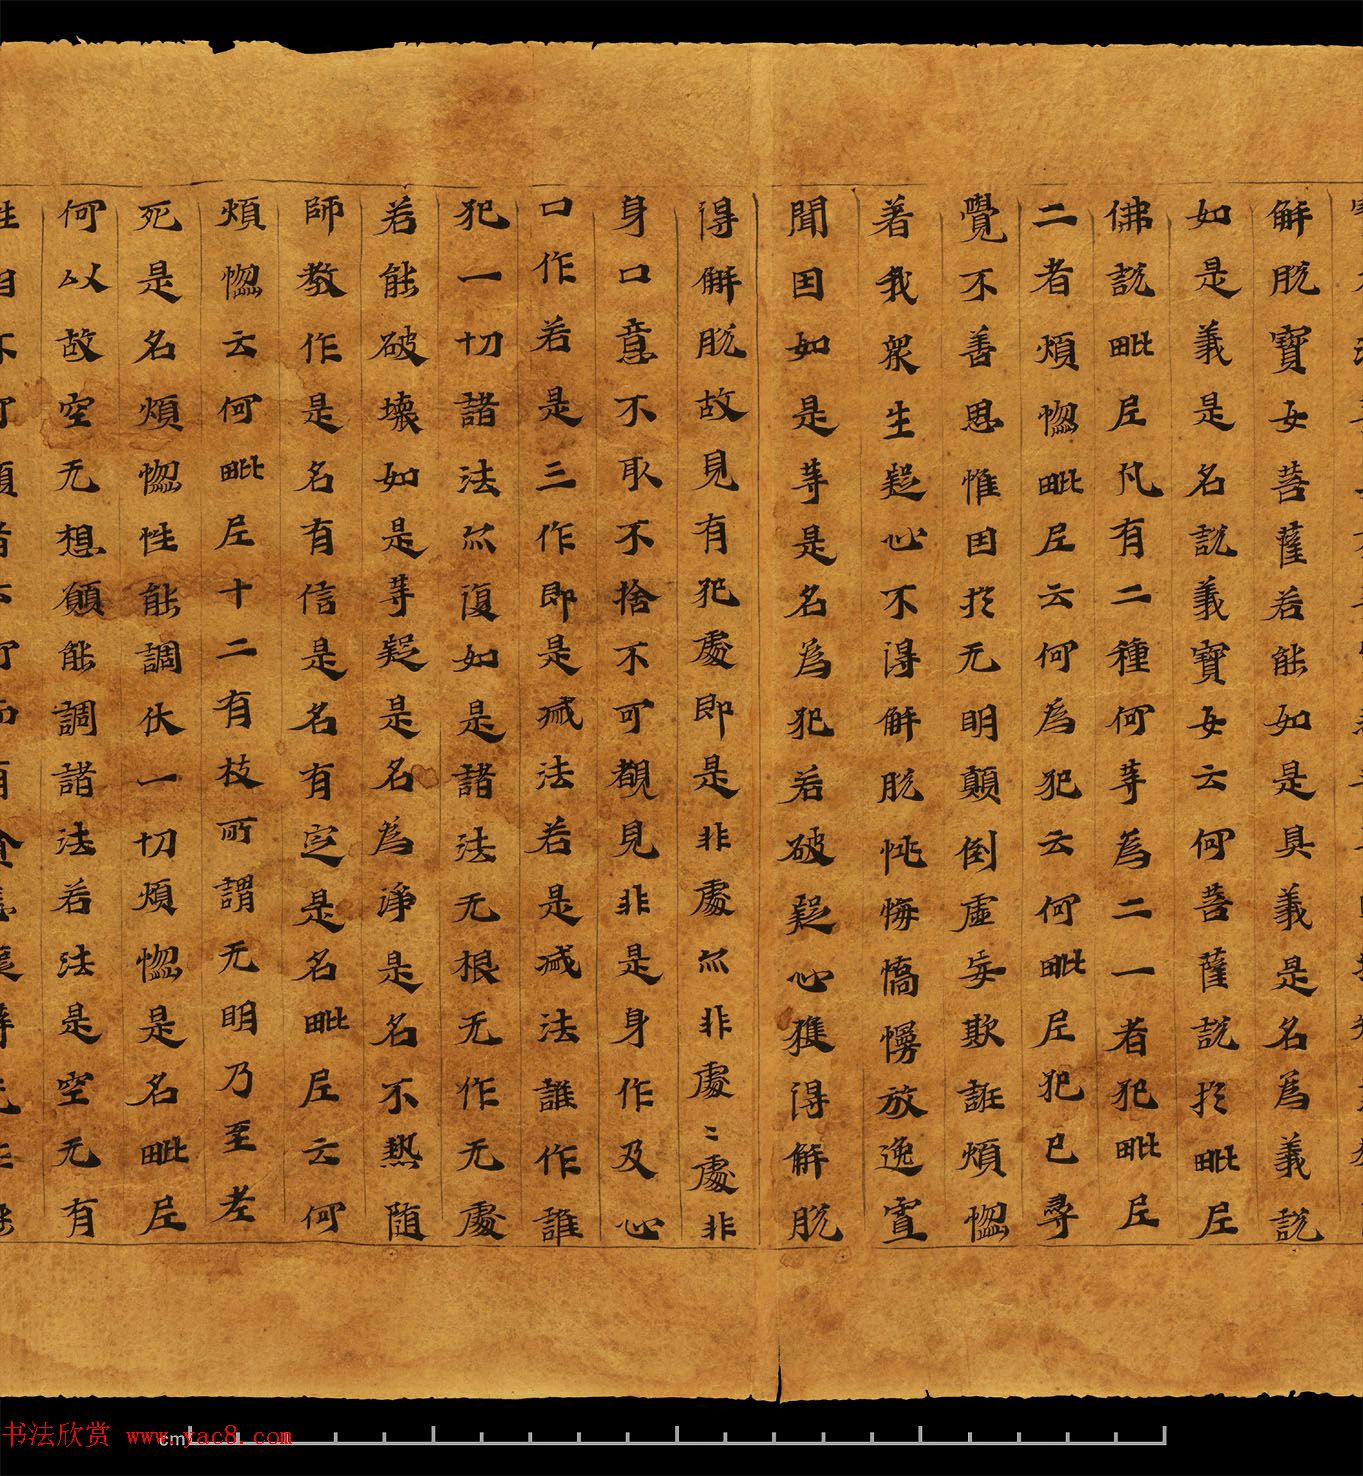 解脱寶女菩薩若能如是具義是名為義説
如是義是名説義寶女云何菩薩説於毗尼
佛説毗尼凡有二種何等為二一者犯毗尼
二者煩惚毗尼云何為犯云何毗尼犯已尋
覺不善思惟因於无明顛倒虛妄欺誑煩惚
著我衆生疑心不得解脱恌悔憍慢放逸寡
聞因如是等是名為犯若破疑心獲得解脱
得解脱故見有犯處即是非處亦非處〻處非
身口意不取不捨不可覩見非是身作及心
口作若是三作即是滅法若是滅法誰作誰
犯一切諸法亦復如是諸法无根无作无處
若能破壞如是等疑是名為淨是名不熱随
師教作是名有信是名有定是名毗尼云何
煩惚云何毗尼十二有枝所謂无明乃至老
死是名煩惚性能調伏一切煩惚是名毗尼
何以故空无想願能調諸法若法是空无有
书法欣赏 www.yac8.com
cm